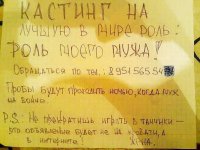 КАСТИНГ НА
ЛУЧШУЮ В МИРЕ РОЛЬ:
РОЛЬ МОЕГО МУЖА!
Обращаться по тел.: 8 951 565 54
Пробы будут проходить ночью, когда муж
на войне.
P.S.: Не превратишь играть в танчики -
это объявление будет не на кровати, а
в интернете!
Жена.